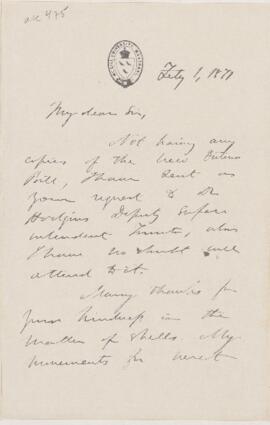 McGILL UNIVERSITY MONTREAL
Feby 1, 1871
My dear Sir,
Not having any
copies of the new
Bill, I have sent on
your request to Dr
Hodgins Deputy Super
intendent Toronto, who
I have no doubt will
attend to it.
Many thanks for
your kindness in the
matter of shells. My
movements for next